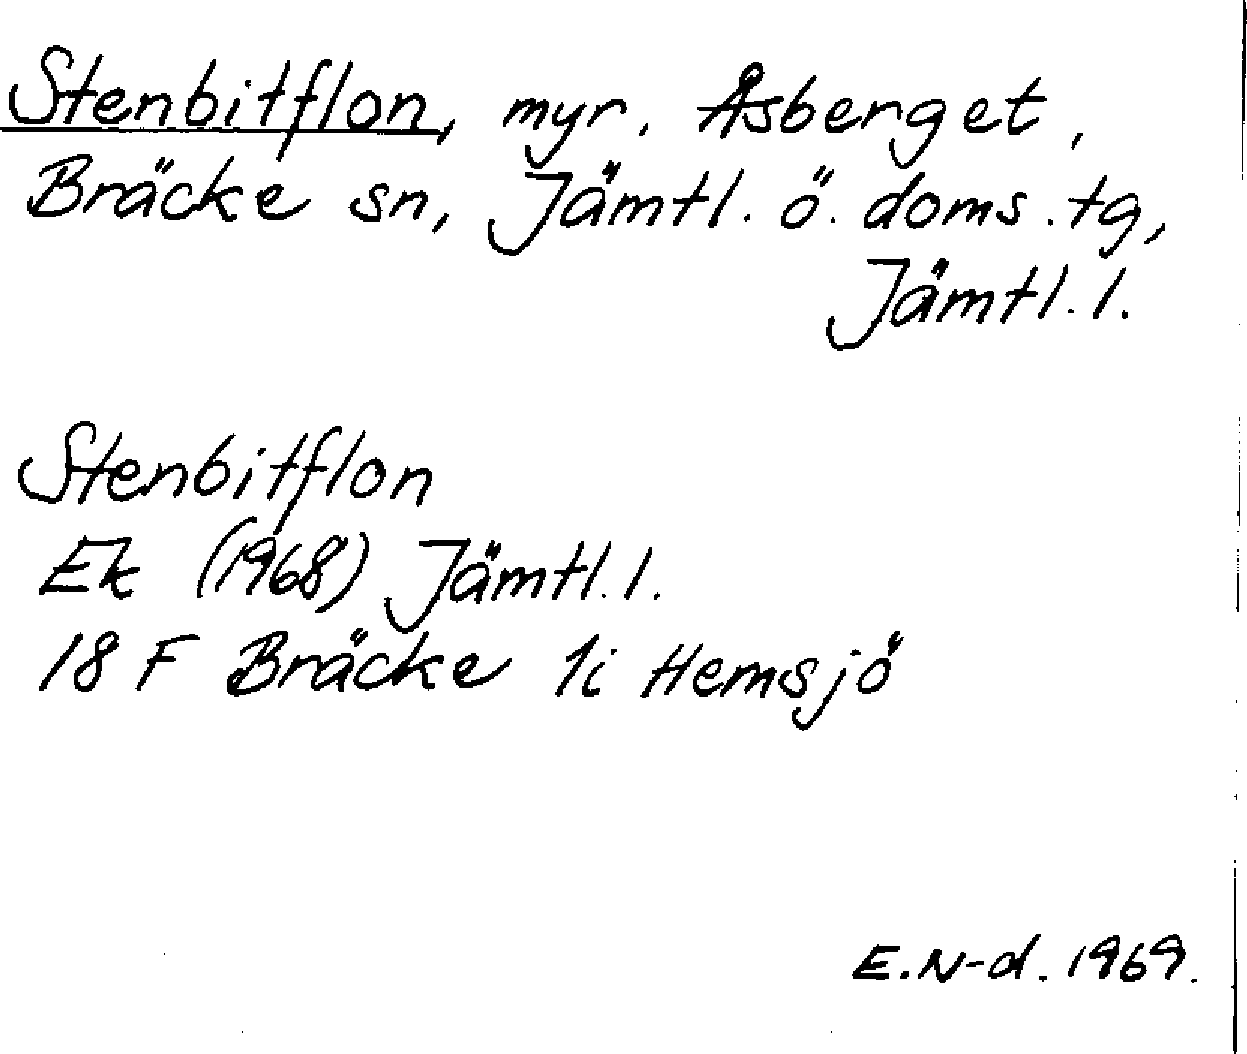 Stenbitflon, myr. Åsberget,
Bräcke sn, Jämtl. ö. doms.tg,
Jämtl. l.
Stenbitflon
Ek (1968) Jämtl. l.
18 F Bräcke 1i Hemsjö
E.N-d. 1969.